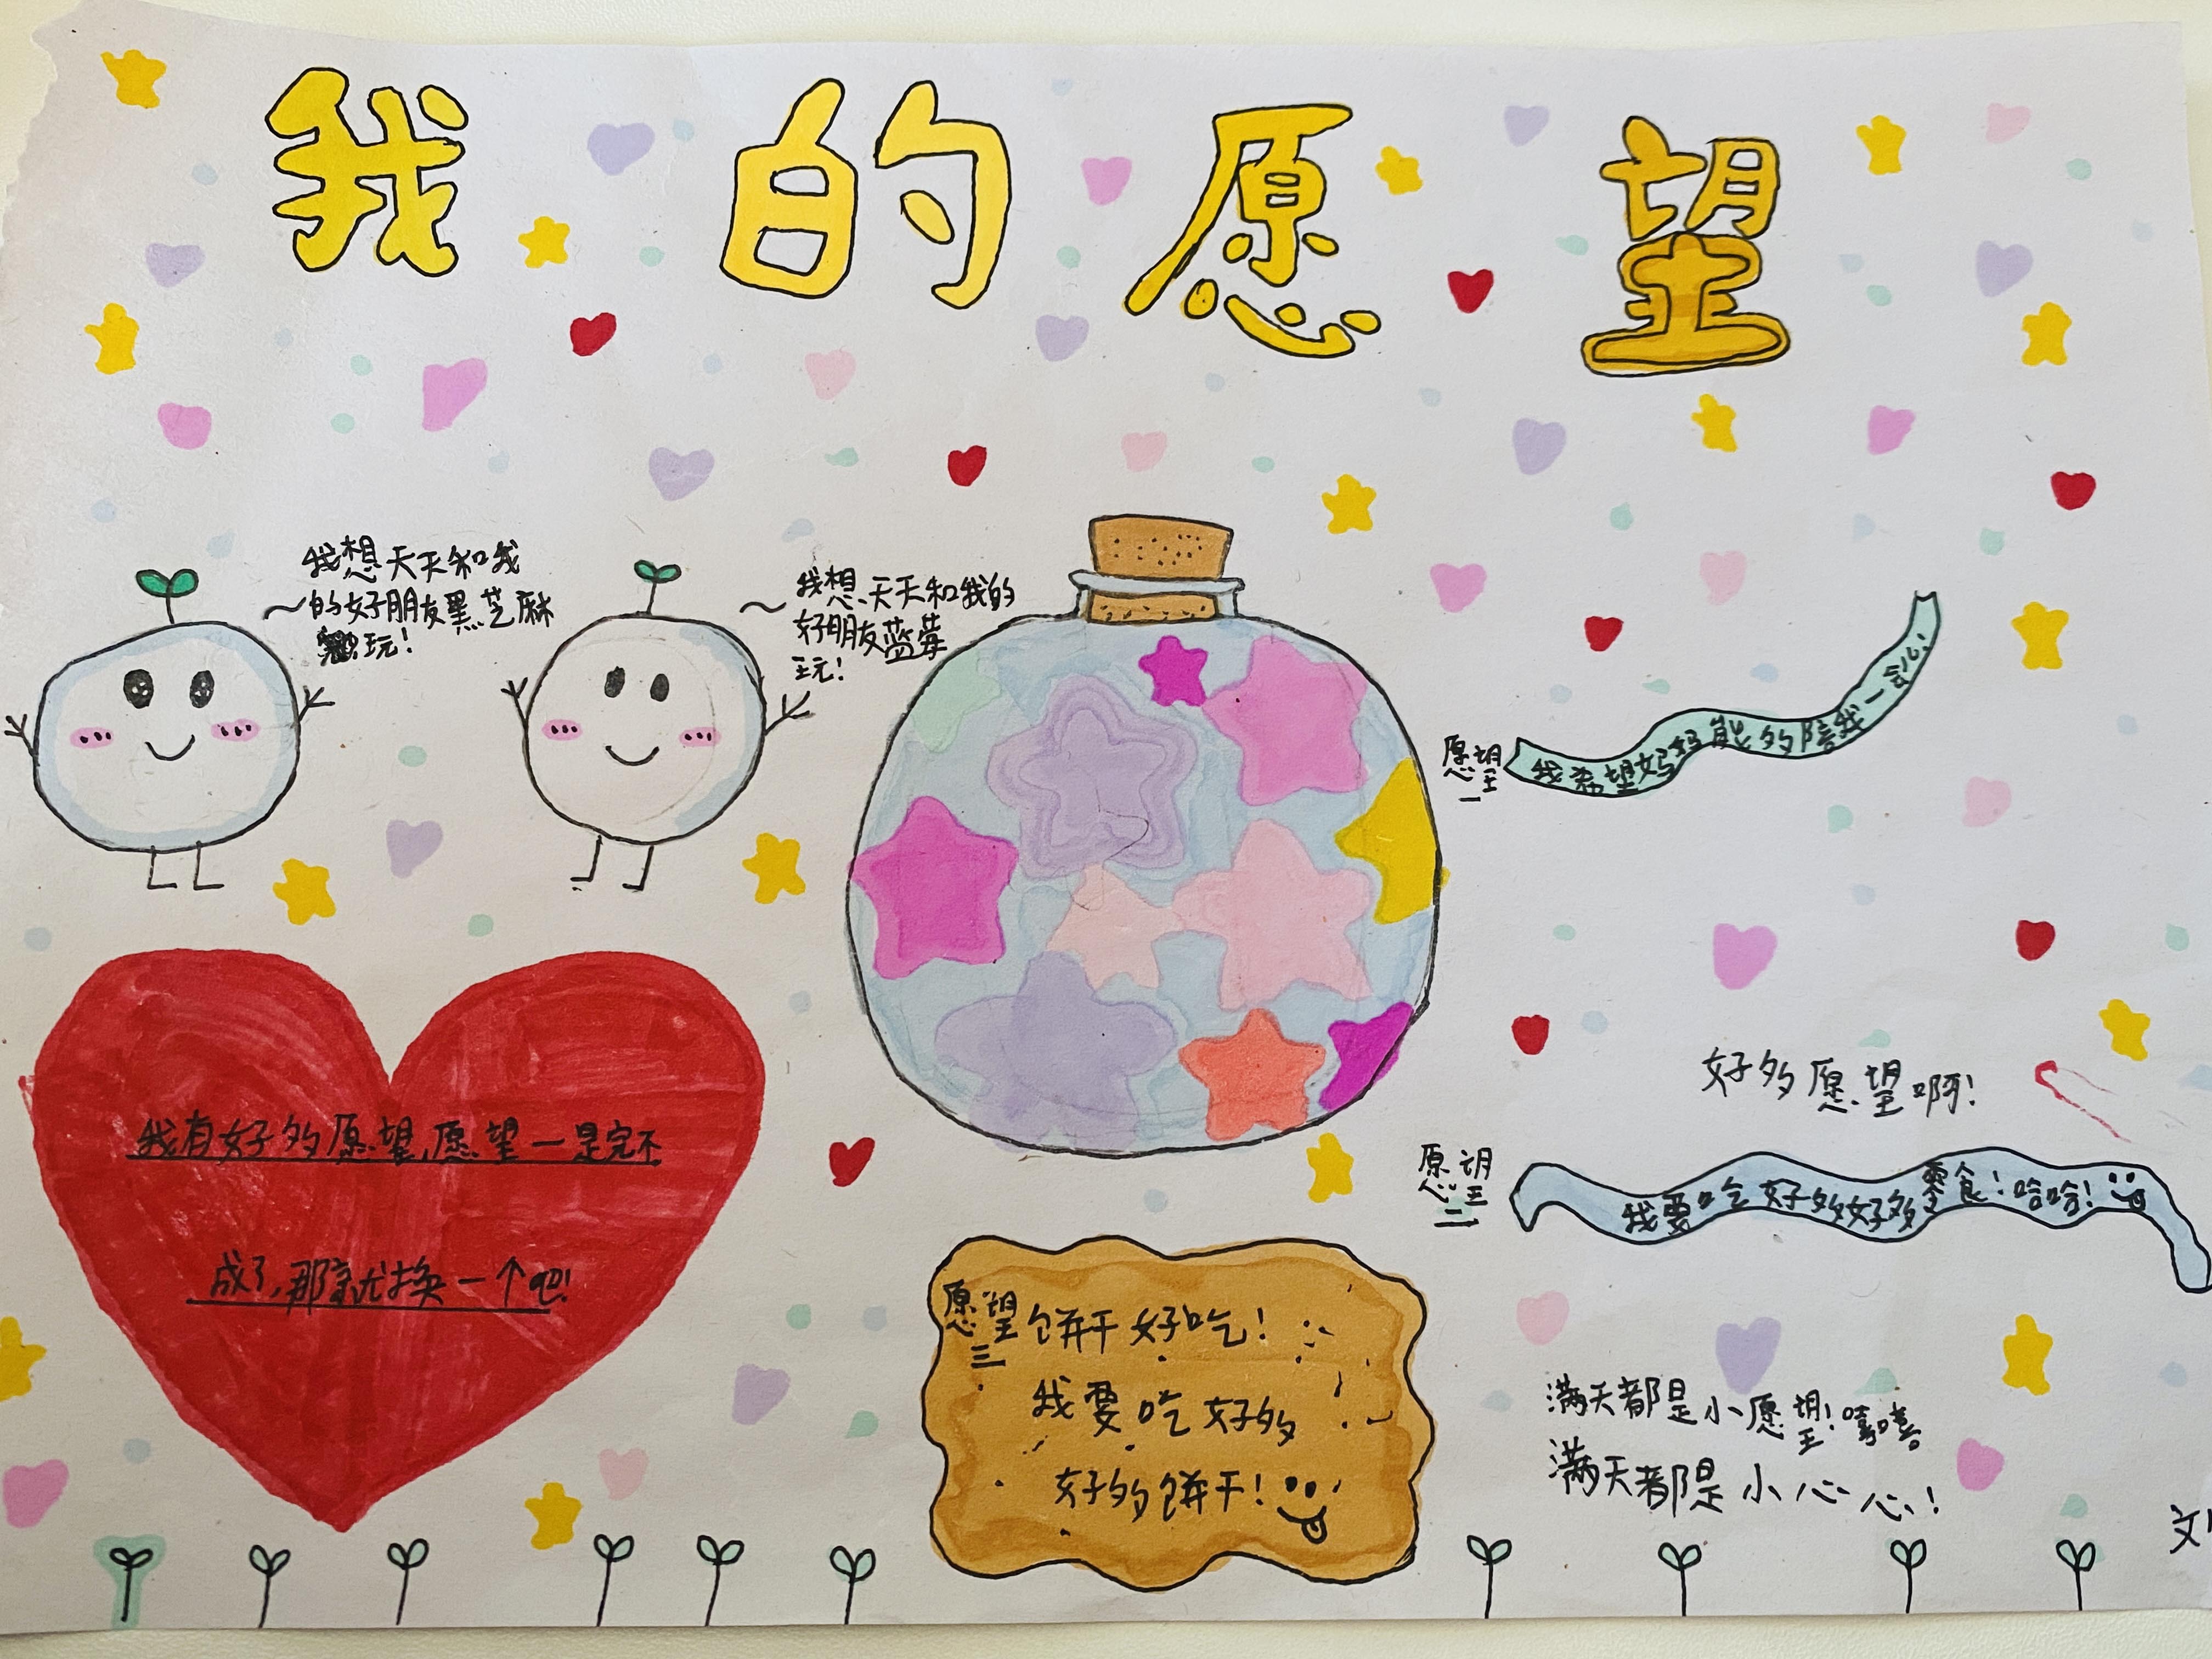 我的愿望
我想天天和我
的好朋友黑芝麻
玩！
我想天天和我的
好朋友蓝莓
玩！
愿望一
我希望妈妈能多陪我一会儿
我有好多愿望，愿望一是完不
成了，那就换一个吧！
好多愿望啊！
愿望二
我要吃好多好多零食！哈哈！
愿望三
饼干好吃！
我要吃好多
好多饼干！
满天都是小愿望！嘻嘻。
满天都是小心心！